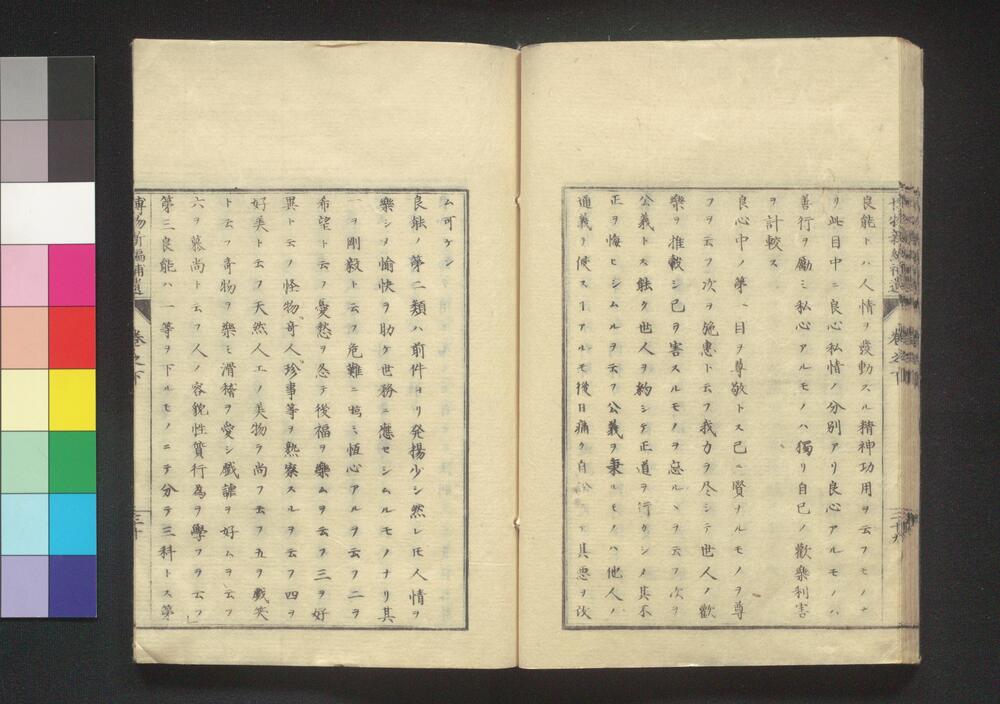 良能トハ人情ヲ發動スル精神功用ヲ云フモノナ
リ此目中ニ良心私情ノ分別アリ良心アルモノハ
善行ヲ勵ミ私心アルモノハ獨リ自已ノ歡樂利害
ヲ計較ス
良心中ノ第一目ヲ尊敬トス已ニ賢ナルモノヲ尊
フヲ云フ次ヲ施惠ト云フ我力ヲ尽シテ世人ノ歡
樂ヲ推轂シ已ヲ害スルモノヲ忘ルヽヲ云フ次ヲ
公義トス能ク世人ヲ約シテ正道ヲ行ケシメ其不
正ヲ悔ヒシムルヲ云フ公義ヲ秉ルモノハ他人ノ
通義ヲ使スアルモ後日痛ク自訟シテ其悪ヲ改
ム可ケン
良能ノ第二類ハ前件ヨリ発揚少シ然レ𪜈人情ヲ
樂シメ愉快ヲ助ケ世務ニ應セシムルモノナリ其
一ヲ剛毅ト云フ危難ニ臨ミ恆心アルヲ云フ二ヲ
希望ト云フ憂愁ヲ忍テ後福ヲ樂ムヲ云フ三ヲ好
異ト云フ怪物、奇人、珍事等ヲ熟察スルヲ云フ四ヲ
好美ト云フ天然人エノ美物ヲ尚フ云フ五ヲ戲笑
ト云フ奇物ヲ樂ミ滑稽ヲ愛シ戲謔ヲ好ムヲ云フ
六ヲ慕尚ト云フ人ノ容貌性質行為ヲ學フヲ云フ」
第三良能ハ一等ヲ下ルモノニテ分テ三科トス第
博物新編補遺 卷之下 三十